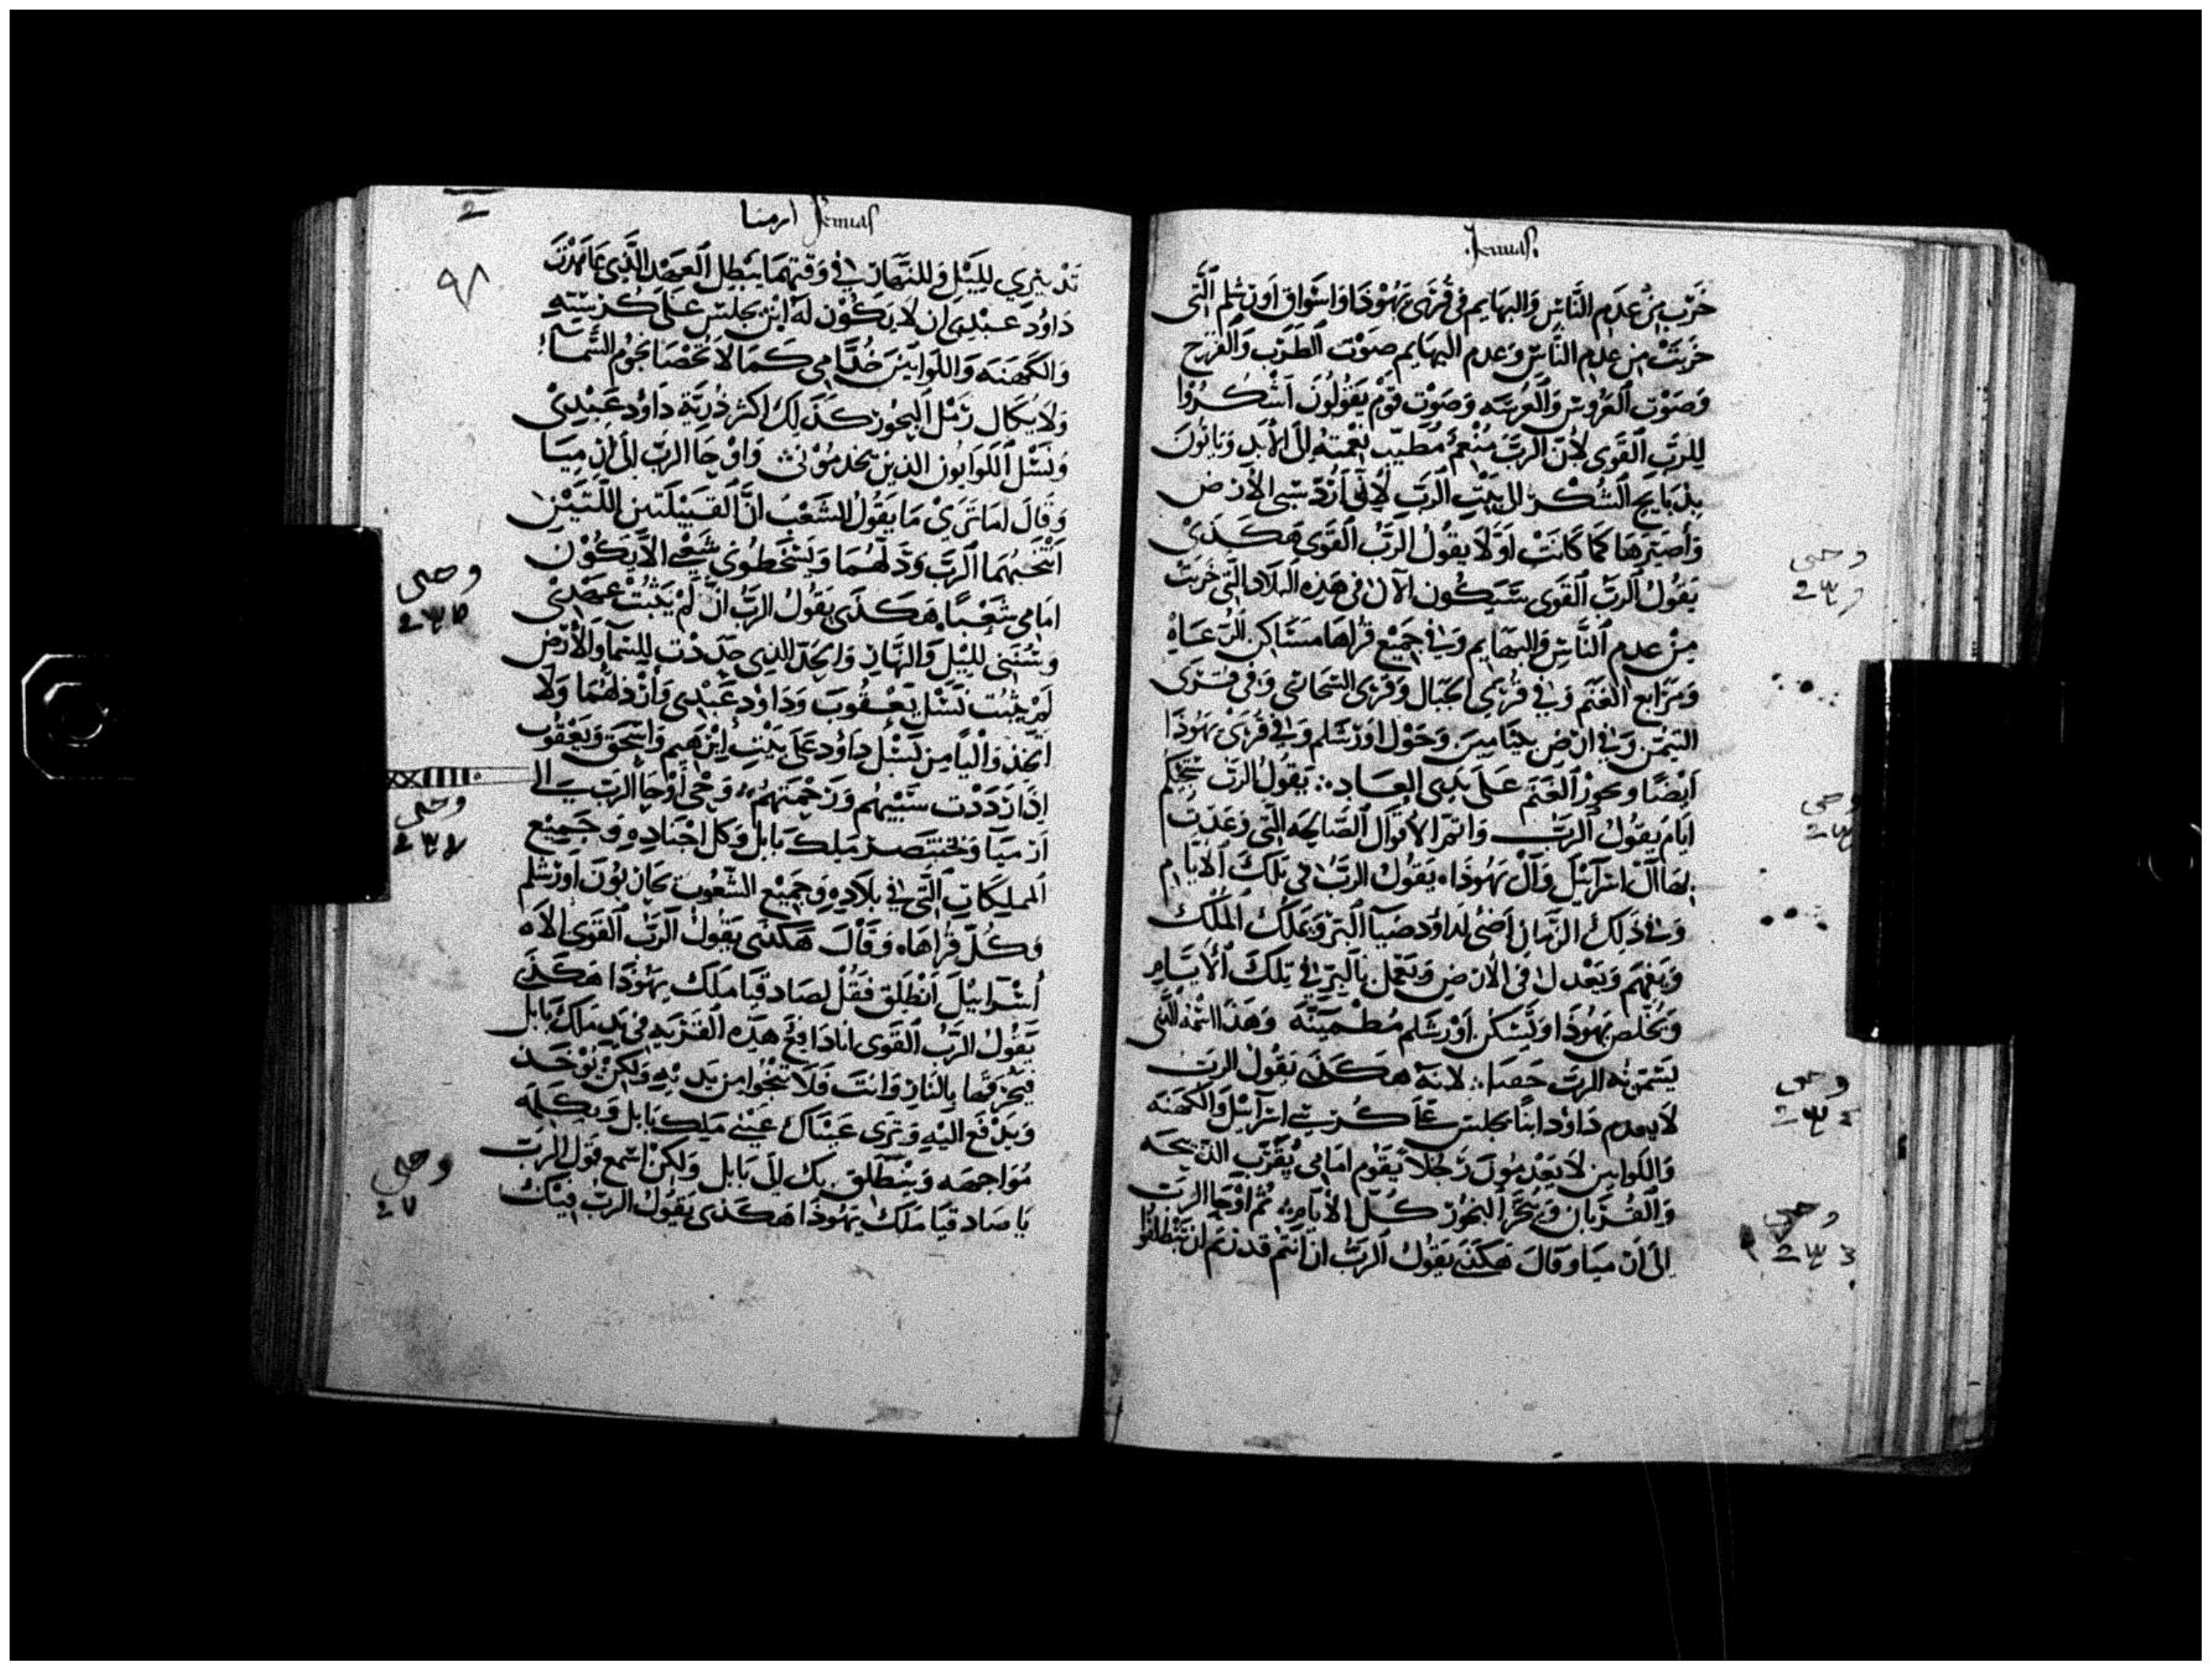 Jemias
خَرْب مِنْ عدَم النَّاسِ وَالبهَايم في قُرَى يَهُوْذَا وَاسْوَاقِ اورَشلم الَّتى
خرِبَتْ من عدم النَّاسِ وَعدم البهَايم صَوْتَ الطَرَب وَالفَرَح
وَصَوْتِ العَرُوسِ وَالعَرُسَه وَصَوْتِ قوْم يَقُولُونَ اشكُرُوْا
لِلربّ القَوى لأنّ الرَبَّ مُنْعمٌ مُطيِّب نعْمتِهِ الى الأبَدِ وَيَاتُونَ
بِذبَايح الشُكْرِ الى بَيْت الربّ لاِنّى اَرُدّ سَبى الأرض
وَأصَيّرهَا كَمَا كَانَتْ اوّلا يقُولُ الرَّبُّ القَوى هَكَذَىْ
يَقُولُ الرَبّ القَوى سَيَكُون الآن في هَذِه البلاد الَّتى خَرِبَت
مِنْ عدم النَّاسِ وَالبهَايم وَفي جَمِيْع قُرَاهَا مسَاكن الرعَاهِ
وَمَرَابع الغَنَم وَفي قُرَى الجَبَال وَقرَى السّحَارى وَفي قُرَى
التيمَن وَفي ارْضِ بنيَاميْن وَحَوْل اورَشلم وَفي قُرَىْ يَهُوْذَا
ايْضًا وتجوز الغَنَم عَلَى يدَى العَادِ ∴ يَقُولُ الرَبّ سَتَجيكم
ايّام يَقُولُ الرَبّ وَاتمم الأقوَال الصَالحه الَّتى وَعَدت
بهَا آل اسرَآئيْل وَآل يَهُوذَا ه يَقُولُ الربّ في تلكَ الأيّام
وَفي ذَلِكَ الزمَان اضى لدَاوُد ضيَآ البرّ وَيَملكُ المَلكُ
وَيَفهَم وَيعْدل في الأرض وَيعْمل بالبرّ في تِلكَ الأيّام
وَيَخلص يَهُوذَا وَتَسكن اوْرَشلم مُطْمَئنّة وَهَذَا اسْمُه الَّذى
يَسمّونَه الرَبّ حَقنَا ∴ لاِنّه هَكَذى يَقُولُ الربّ
لايعدم دَاوُد ابنًا يجلس على كُرسِي اسرَآئيْل وَالكَهَنَه
وَاللوَاين لاَ يَعْدمُون رَجُلاً يَقوْم امَامي يُقَرّب الذّبيحَه
وَالقُرْبَان وَيبَخّر البخُوْر كُلّ الأيّام ∴ ثم اوْحَا الربّ
الى ارْميَا وقالَ هَكَذى يَقُولُ الرَبّ ان انتم قدرتم ان تَبْطلوا
وحى
وحى
وحى
وحى
ارميا Jemias
٩٨
تَدبيْرى لِليْل وَللنَهَار في وَقتهمَا يَبْطل العَهْد الَّذى عَاهَدْتُ
دَاوُد عَبْدى ان لا يَكُوْن لَهُ ابْن يجلس عَلَى كُرْسيّه
وَالكَهَنَه وَاللوَاييْن خُدَّامى كَمَا لاَ تُحْصَا نجوْم السَّمَا
وَلا يُكَال رَمْل البحُوْر كَذَلِك اكثر ذُرِّية دَاوُد عَبْدىْ
وَنَسْل اللوَايون الذين يخدمُوْني ∴ وَاوْحَا الربّ الى ارميَا
وَقَالَ امَا تَرَىْ مَا يَقُولُ الشَعْبُ انَّ القَبِيْلَتين اللتَيْنِ
انْتَخبهُمَا الربّ وَذّ لهُمَا وَيَسْخطُونى شَعْبى الاَّ يَكُوْن
امَامى شَعْبًا ه هَكَذى يَقُولُ الرَبُّ ان لَّم يَثبُتْ عَهْدىْ
وَسُنَنى لِليْل وَالنهَار وَالحَدّ الذي حدّدْت للسَّمَآ وَالأرضْ
لم يثبُت نَسْل يَعْقُوبَ وَدَاوُد عَبْدى وَأرْذلهُمَا وَلاَ
اتّخذ وَاليًا مِن نَسْل دَاوُد عَلَى بَيْت ابْرَهيم وَاسْحَق وَيَعْقُوب
اذَا رَدَدْت سَبْيهُم وَرَحمتهُم ∴ وَحى أوْحَا الرَبّ الى
ارْميَا وَبختنَصر مَلِك بَابل وَكل اجْنَادِهِ وَجَمِيْع
المملِكَاتِ الَّتى في بلاَدِهِ وَجميْع الشّعُوب يحَاربُونَ اورَشلم
وَكُلّ قُرَاهَا ه وَقالَ هَكَذى يَقُولُ الرَبّ القَوى الاَه
اسْرَايْيلَ انْطَلق فَقُلْ لصَادقيَا مَلك يَهُوْذَا هَكَذى
يَقُولُ الرَبُّ القَوى انَا دَافِعٌ هَذه القَرْيه في يَد مَلك بَابل
فيحْرقهَا بِالنَار وَانتَ فلاَ تَنجُوا من يَديْه وَلكِنْ تؤخَذ
وَتدْفَع اليْهِ وَترَى عَيْنَاك عَيْنى مَلِك بَابل وَيكَلمه
مُوَاجهَه وَيَنْطَلق بك الى بَابل وَلَكِنْ اسْمع قَوْل الربّ
يَا صَادقيَا مَلك يَهُوْذَا هَكَذى يَقُولُ الرَبّ فيْكَ
وحى
وحى
وحى